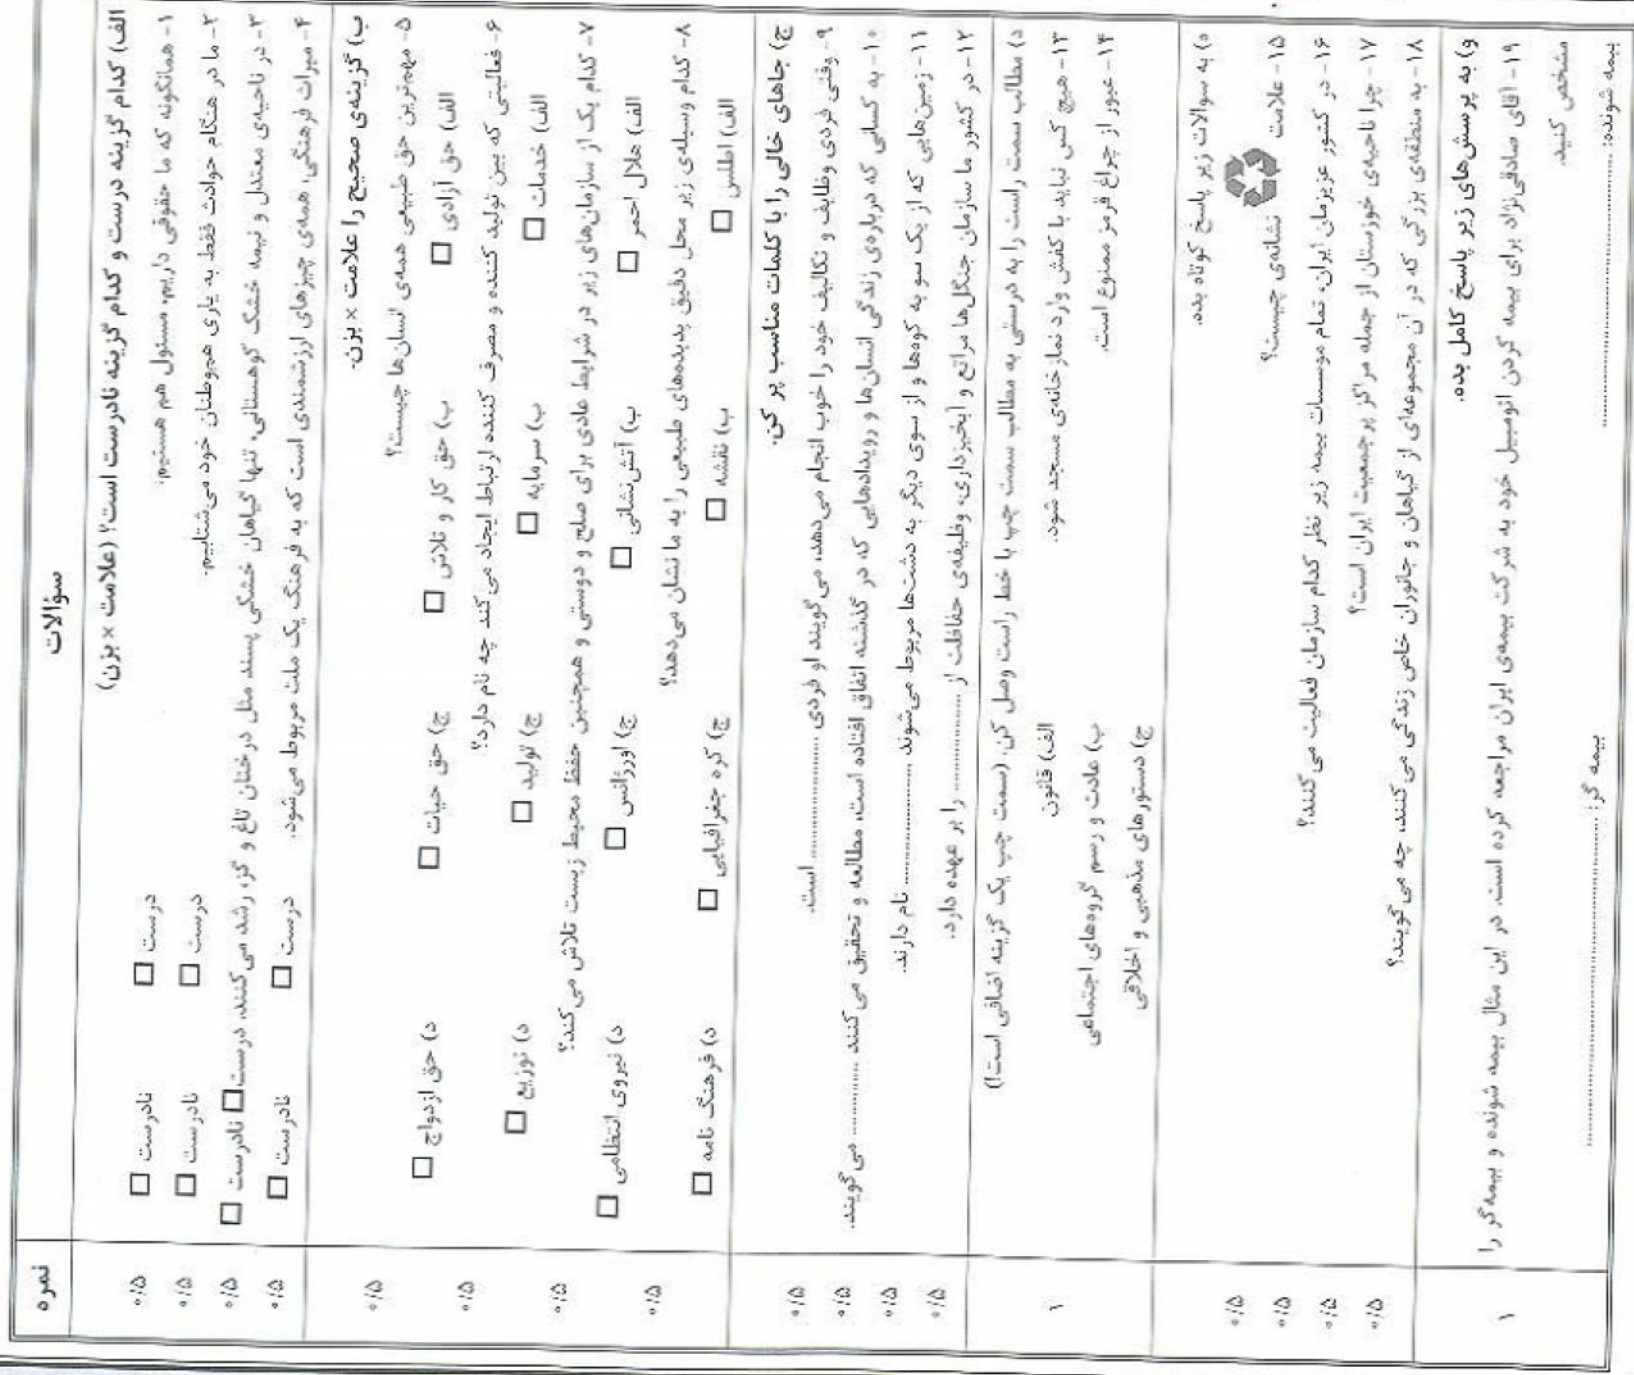 سؤالات
نمره
الف) کدام گزینه درست و کدام گزینه نادرست است؟ (علامت × بزن)
۱- همانگونه که ما حقوقی داریم، مسئول هم هستیم. درست □ نادرست □ ۰/۵
۲- ما در هنگام حوادث فقط به یاری هم‌وطنان خود می‌شتابیم. درست □ نادرست □ ۰/۵
۳- در ناحیه‌ی معتدل و نیمه خشک کوهستانی، تنها گیاهان خشکی پسند مثل درختان تاغ و گز، رشد می‌کنند. درست □ نادرست □ ۰/۵
۴- میراث فرهنگی، همه‌ی چیزهای ارزشمندی است که به فرهنگ یک ملت مربوط می‌شود. درست □ نادرست □ ۰/۵
ب) گزینه‌ی صحیح را علامت × بزن.
۵- مهم‌ترین حق طبیعی همه‌ی انسان‌ها چیست؟ ۰/۵
الف) حق آزادی □ ب) حق کار و تلاش □ ج) حق حیات □ د) حق ازدواج □
۶- فعالیتی که بین تولید کننده و مصرف کننده ارتباط ایجاد می‌کند چه نام دارد؟ ۰/۵
الف) خدمات □ ب) سرمایه □ ج) تولید □ د) توزیع □
۷- کدام یک از سازمان‌های زیر در شرایط عادی برای صلح و دوستی و همچنین حفظ محیط زیست تلاش می‌کند؟ ۰/۵
الف) هلال احمر □ ب) آتش‌نشانی □ ج) اورژانس □ د) نیروی انتظامی □
۸- کدام وسیله‌ی زیر محل دقیق پدیده‌های طبیعی را به ما نشان می‌دهد؟ ۰/۵
الف) اطلس □ ب) نقشه □ ج) کره جغرافیایی □ د) فرهنگ نامه □
ج) جاهای خالی را با کلمات مناسب پر کن.
۹- وقتی فردی وظایف و تکالیف خود را خوب انجام می‌دهد، می‌گویند او فردی .................. است. ۰/۵
۱۰- به کسانی که درباره‌ی زندگی انسان‌ها و رویدادهایی که در گذشته اتفاق افتاده است، مطالعه و تحقیق می‌کنند .................. می‌گویند. ۰/۵
۱۱- زمین‌هایی که از یک سو به کوه‌ها و از سوی دیگر به دشت‌ها مربوط می‌شوند .................. نام دارند. ۰/۵
۱۲- در کشور ما سازمان جنگل‌ها مراتع و آبخیزداری، وظیفه‌ی حفاظت از .................. را بر عهده دارد. ۰/۵
د) مطالب سمت راست را به درستی به مطالب سمت چپ با خط راست وصل کن. (سمت چپ یک گزینه اضافی است!)
۱۳- هیچ کس نباید با کفش وارد نمازخانه‌ی مسجد شود. الف) قانون ۱
۱۴- عبور از چراغ قرمز ممنوع است. ب) عادت و رسم گروه‌های اجتماعی
ج) دستورهای مذهبی و اخلاقی
ه) به سوالات زیر پاسخ کوتاه بده.
۱۵- علامت نشانه‌ی چیست؟ ۰/۵
۱۶- در کشور عزیزمان ایران، تمام موسسات بیمه، زیر نظر کدام سازمان فعالیت می‌کنند؟ ۰/۵
۱۷- چرا ناحیه‌ی خوزستان از جمله مراکز پرجمعیت ایران است؟ ۰/۵
۱۸- به منطقه‌ی بزرگی که در آن مجموعه‌ای از گیاهان و جانوران خاص زندگی می‌کنند، چه می‌گویند؟ ۰/۵
و) به پرسش‌های زیر پاسخ کامل بده.
۱۹- آقای صادقی‌نژاد برای بیمه کردن اتومبیل خود به شرکت بیمه‌ی ایران مراجعه کرده است. در این مثال بیمه شونده و بیمه‌گر را ۱
مشخص کنید.
بیمه شونده: .................. بیمه گر: ..................